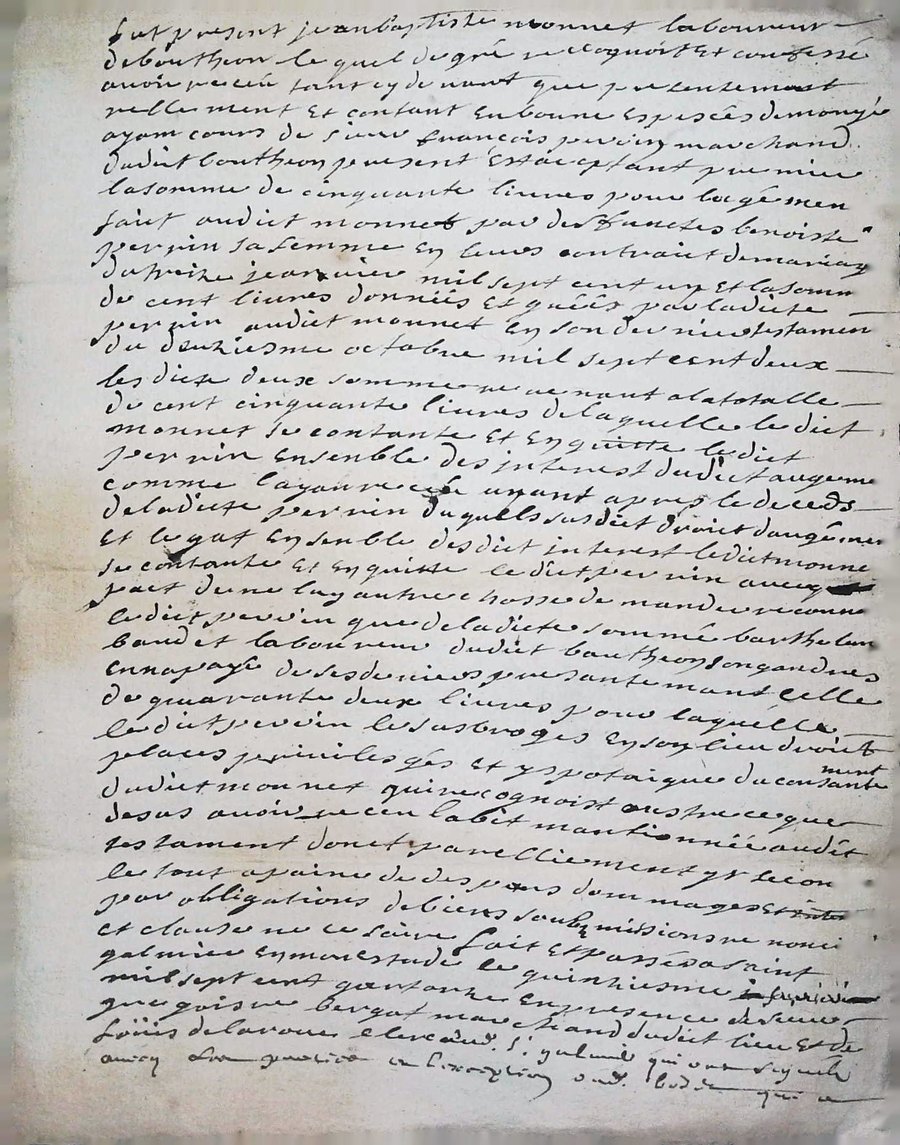 fut present jean baptiste monnet laboureur
de boutheon le quel de gré recognoist et confessé
avoir receu tant cy devant que presentemant
rellement et contant en bonne espesces de monoye
ayam cours de sieur françois perrin marchand
dudict boutheon present et acceptant premier
la somme de cinquante livres pour laugémen
faict audict monnet par deffunctes benoiste
perrin sa femme en leurs contrait de mariag
du treize jeanvier mil sept cent un et la somm
de cent livres donnéés et guéés par ladicte
perrin audict monnet en son dernier testamen
du deuxiesme octobre mil sept cent deux
lesdicte deux somme revenant a la totalle
de cent cinquante livres de laquelle le dict
monnet se contante et en quitte le dict
perrin ensenble des interest dudict augeme
comme layan receu avant apres le deceds
de ladicte perrin duquel susdict droict daugémen
et le gat ensenble desdict interest le dict monne
se contante et en quitte le dict perrin avecq
pact de ne luy autre chosse demander reconne
le dict perrin que de ladicte sommé barthelem
baudet laboureur dudict boutheon son gendres
en na payé de ses deniers presantemant celle
de quarante deux livres pour laquélle
le dict perrin le subroges en son lieu droict
places privileges et ypotaiques du consante
ment
dudict monnet qui recognoist oustre ce que
desus avoir receu labit mantionnéé audit
testament donct pareilliement
le tout a paine de despens dommages et
par obligations de biens soubmissions renonci
et clause necesaire fait et passé a saint
galmier en mon estude le quinziesme
mil sept cent quatorze en presence de sieur
bergat marchand dudict lieu et de
loüis de laroue clerc aud. st galmier qui ont signé
avecq